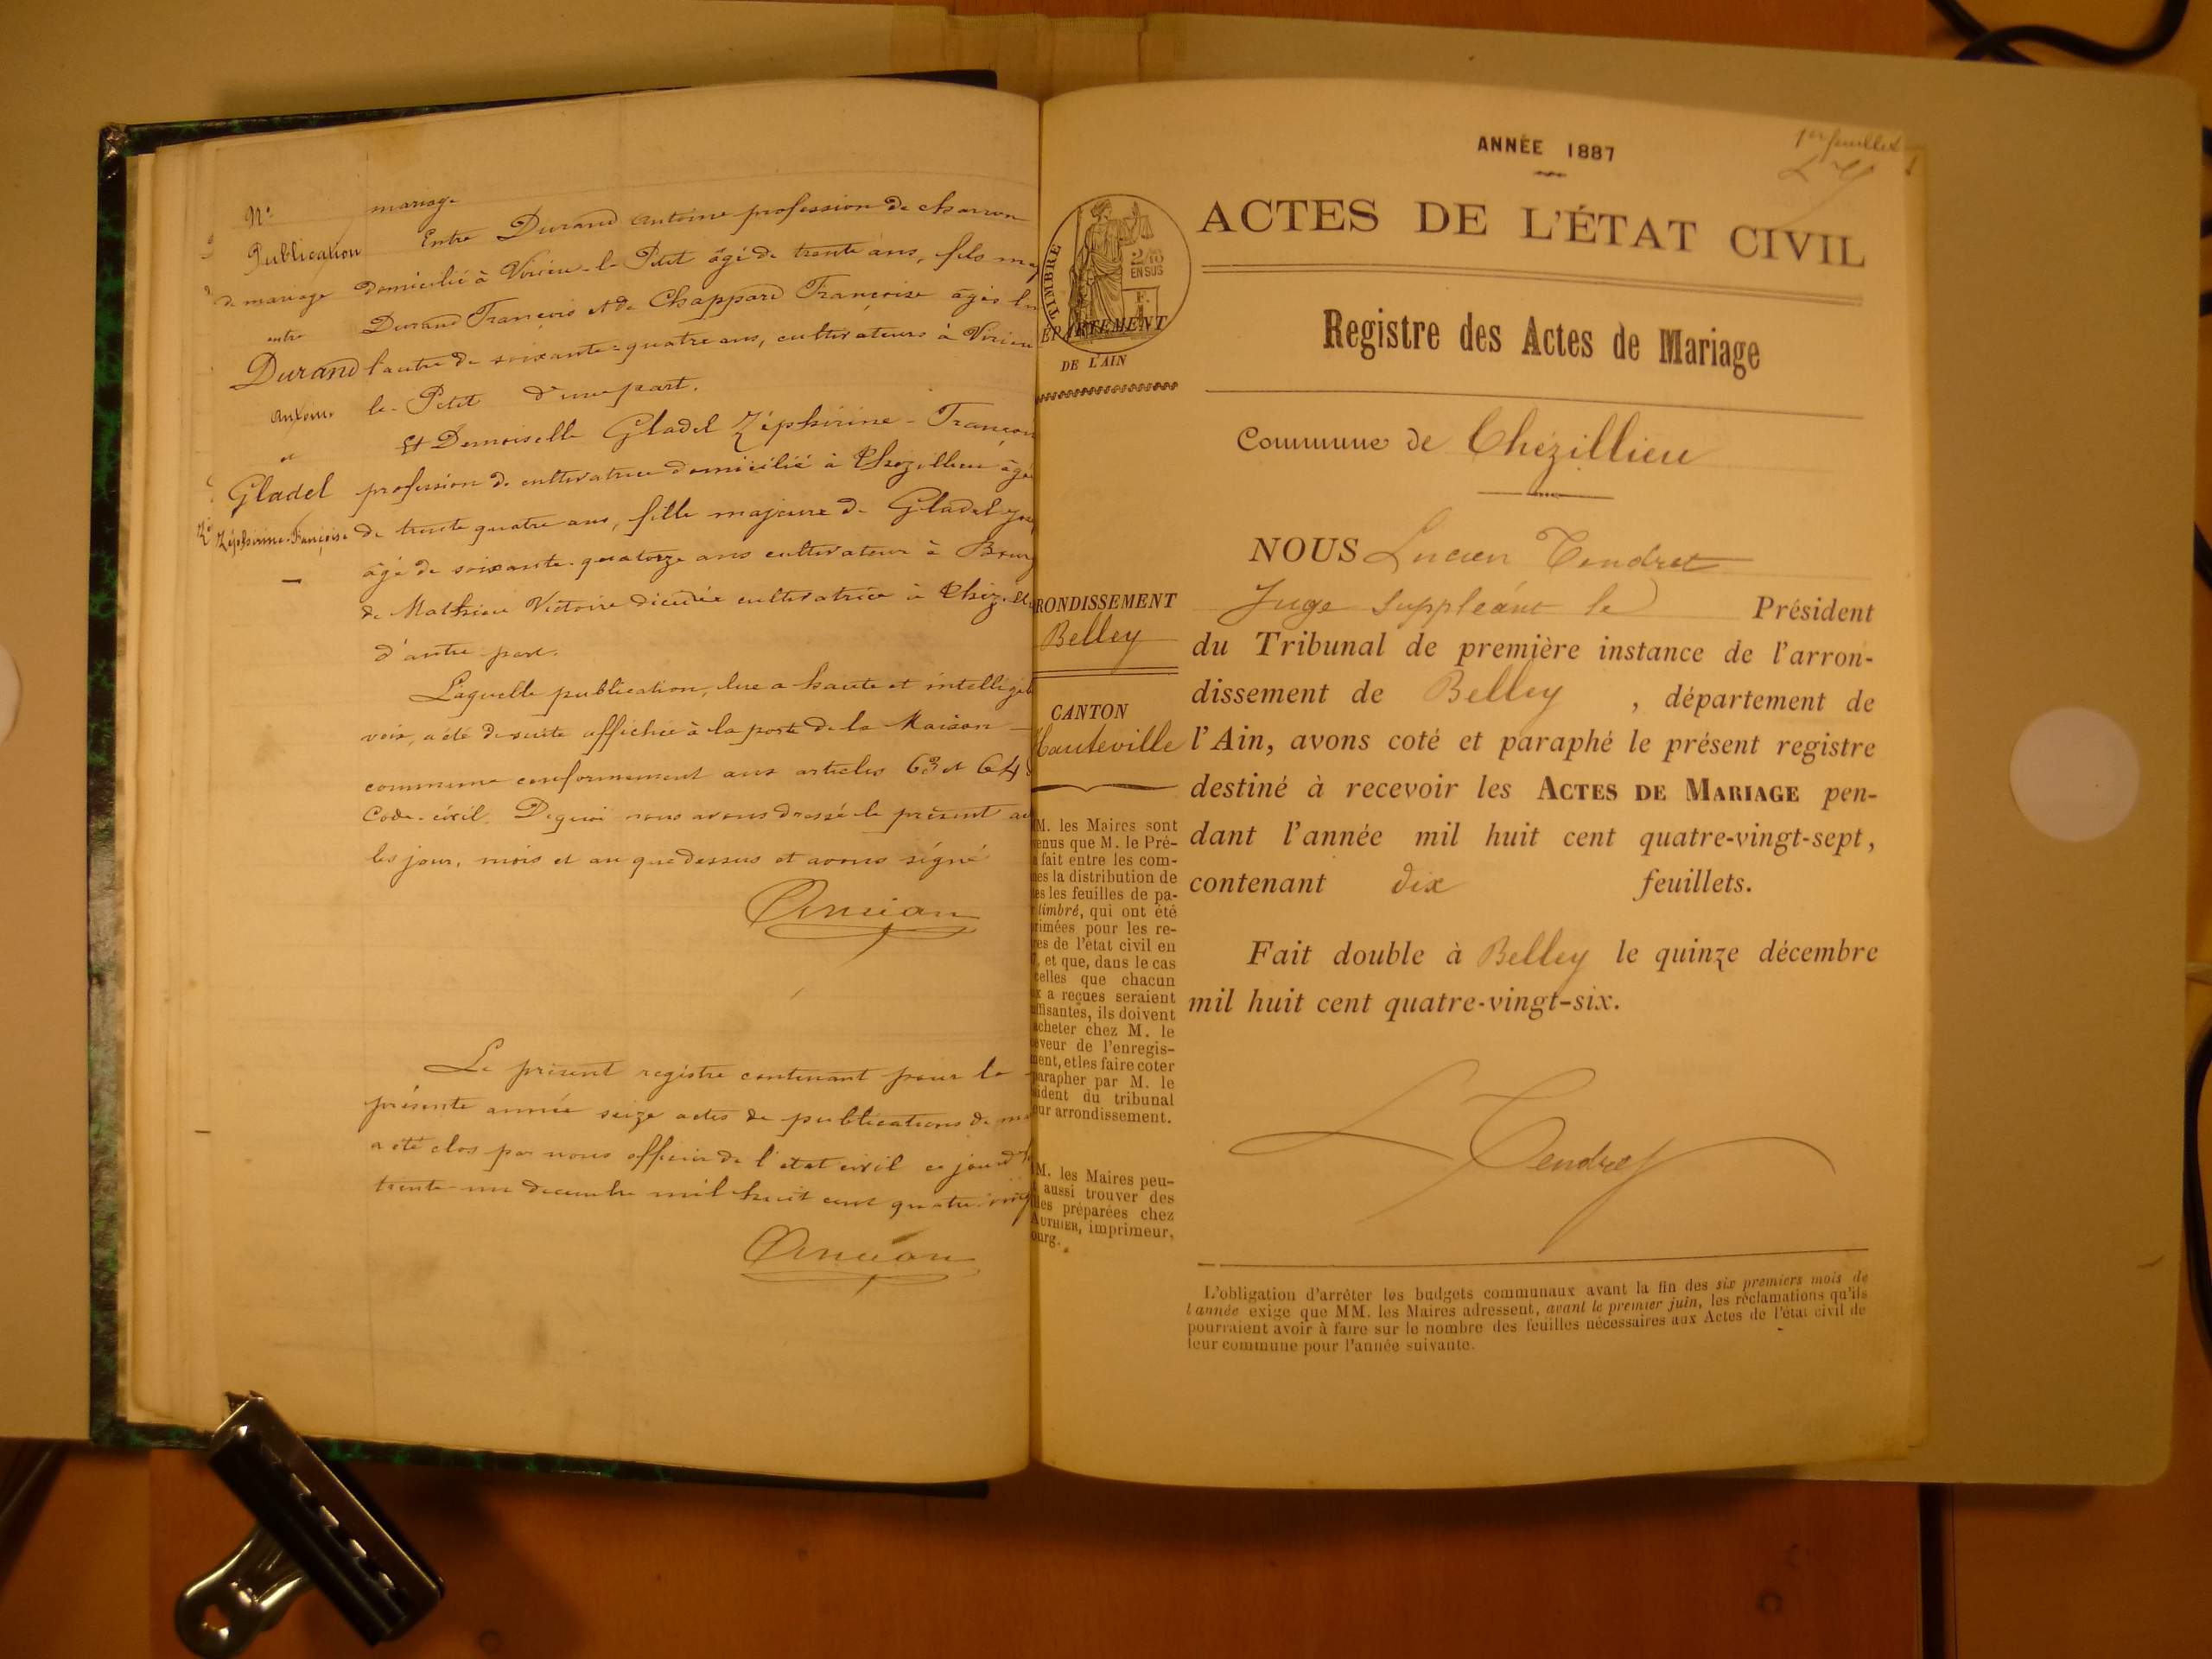 N°
Publication
de mariage
entre
Durand
Antoine
et
Gladel
Zéphirine-Françoise
mariage
Entre Durand Antoine profession de charron
domicilié à Virieu-le-Petit âgé de trente ans, fils
Durand François et de Chappard Françoise âgés
l'autre de soixante-quatre ans, cultivateurs à Virieu
le-Petit d'une part.
Et Demoiselle Gladel Zéphirine-
profession de cultivatrice domicilié à Chézillieu
de trente quatre ans, fille majeure de Gladel
âgé de soixante-quatorze ans cultivateur à
de Mathieu Victoire cultivatrice à
d'autre part.
Laquelle publication, lue a haute et
voix, a été de suite affichée à la porte de la Maison
commune conformement aux articles 63 et 64
Code-civil. De quoi nous avons dressé le présent
les jour, mois et an que dessus et avons signé
Le présent registre contenant pour la
présente année seize actes de publications de
a été clos par nous officier de l'état civil ce
trente-un decembre mil huit cent quatre
ANNÉE 1887
1er feuillet
ACTES DE L'ÉTAT CIVIL
TIMBRE
2/10
EN SUS
DE L'AIN
Registre des Actes de Mariage
Commune de Chézillieu
NOUS Lucien Tendret
Juge Suppléant le Président
du Tribunal de première instance de l'arron-
dissement de Belley, département de
l'Ain, avons coté et paraphé le présent registre
destiné à recevoir les ACTES DE MARIAGE pen-
dant l'année mil huit cent quatre-vingt-sept,
contenant dix feuillets.
Fait double à Belley le quinze décembre
mil huit cent quatre-vingt-six.
L Tendret
RONDISSEMENT
Belley
CANTON
Hauteville
M. les Maires sont
enus que M. le Pré-
a fait entre les com-
es la distribution de
es les feuilles de pa-
timbré, qui ont été
rimées pour les re-
res de l'état civil en
, et que, dans le cas
celles que chacun
x a reçues seraient
ffisantes, ils doivent
acheter chez M. le
eveur de l'enregis-
ment, et les faire coter
parapher par M. le
sident du tribunal
ur arrondissement.
M. les Maires peu-
aussi trouver des
les préparées chez
AUTHIER, imprimeur,
ourg.
L'obligation d'arrêter les budgets communaux avant la fin des six premiers mois de
l'année exige que MM. les Maires adressent, avant le premier juin, les réclamations qu'ils
pourraient avoir à faire sur le nombre des feuilles nécessaires aux Actes de l'état civil de
leur commune pour l'année suivante.